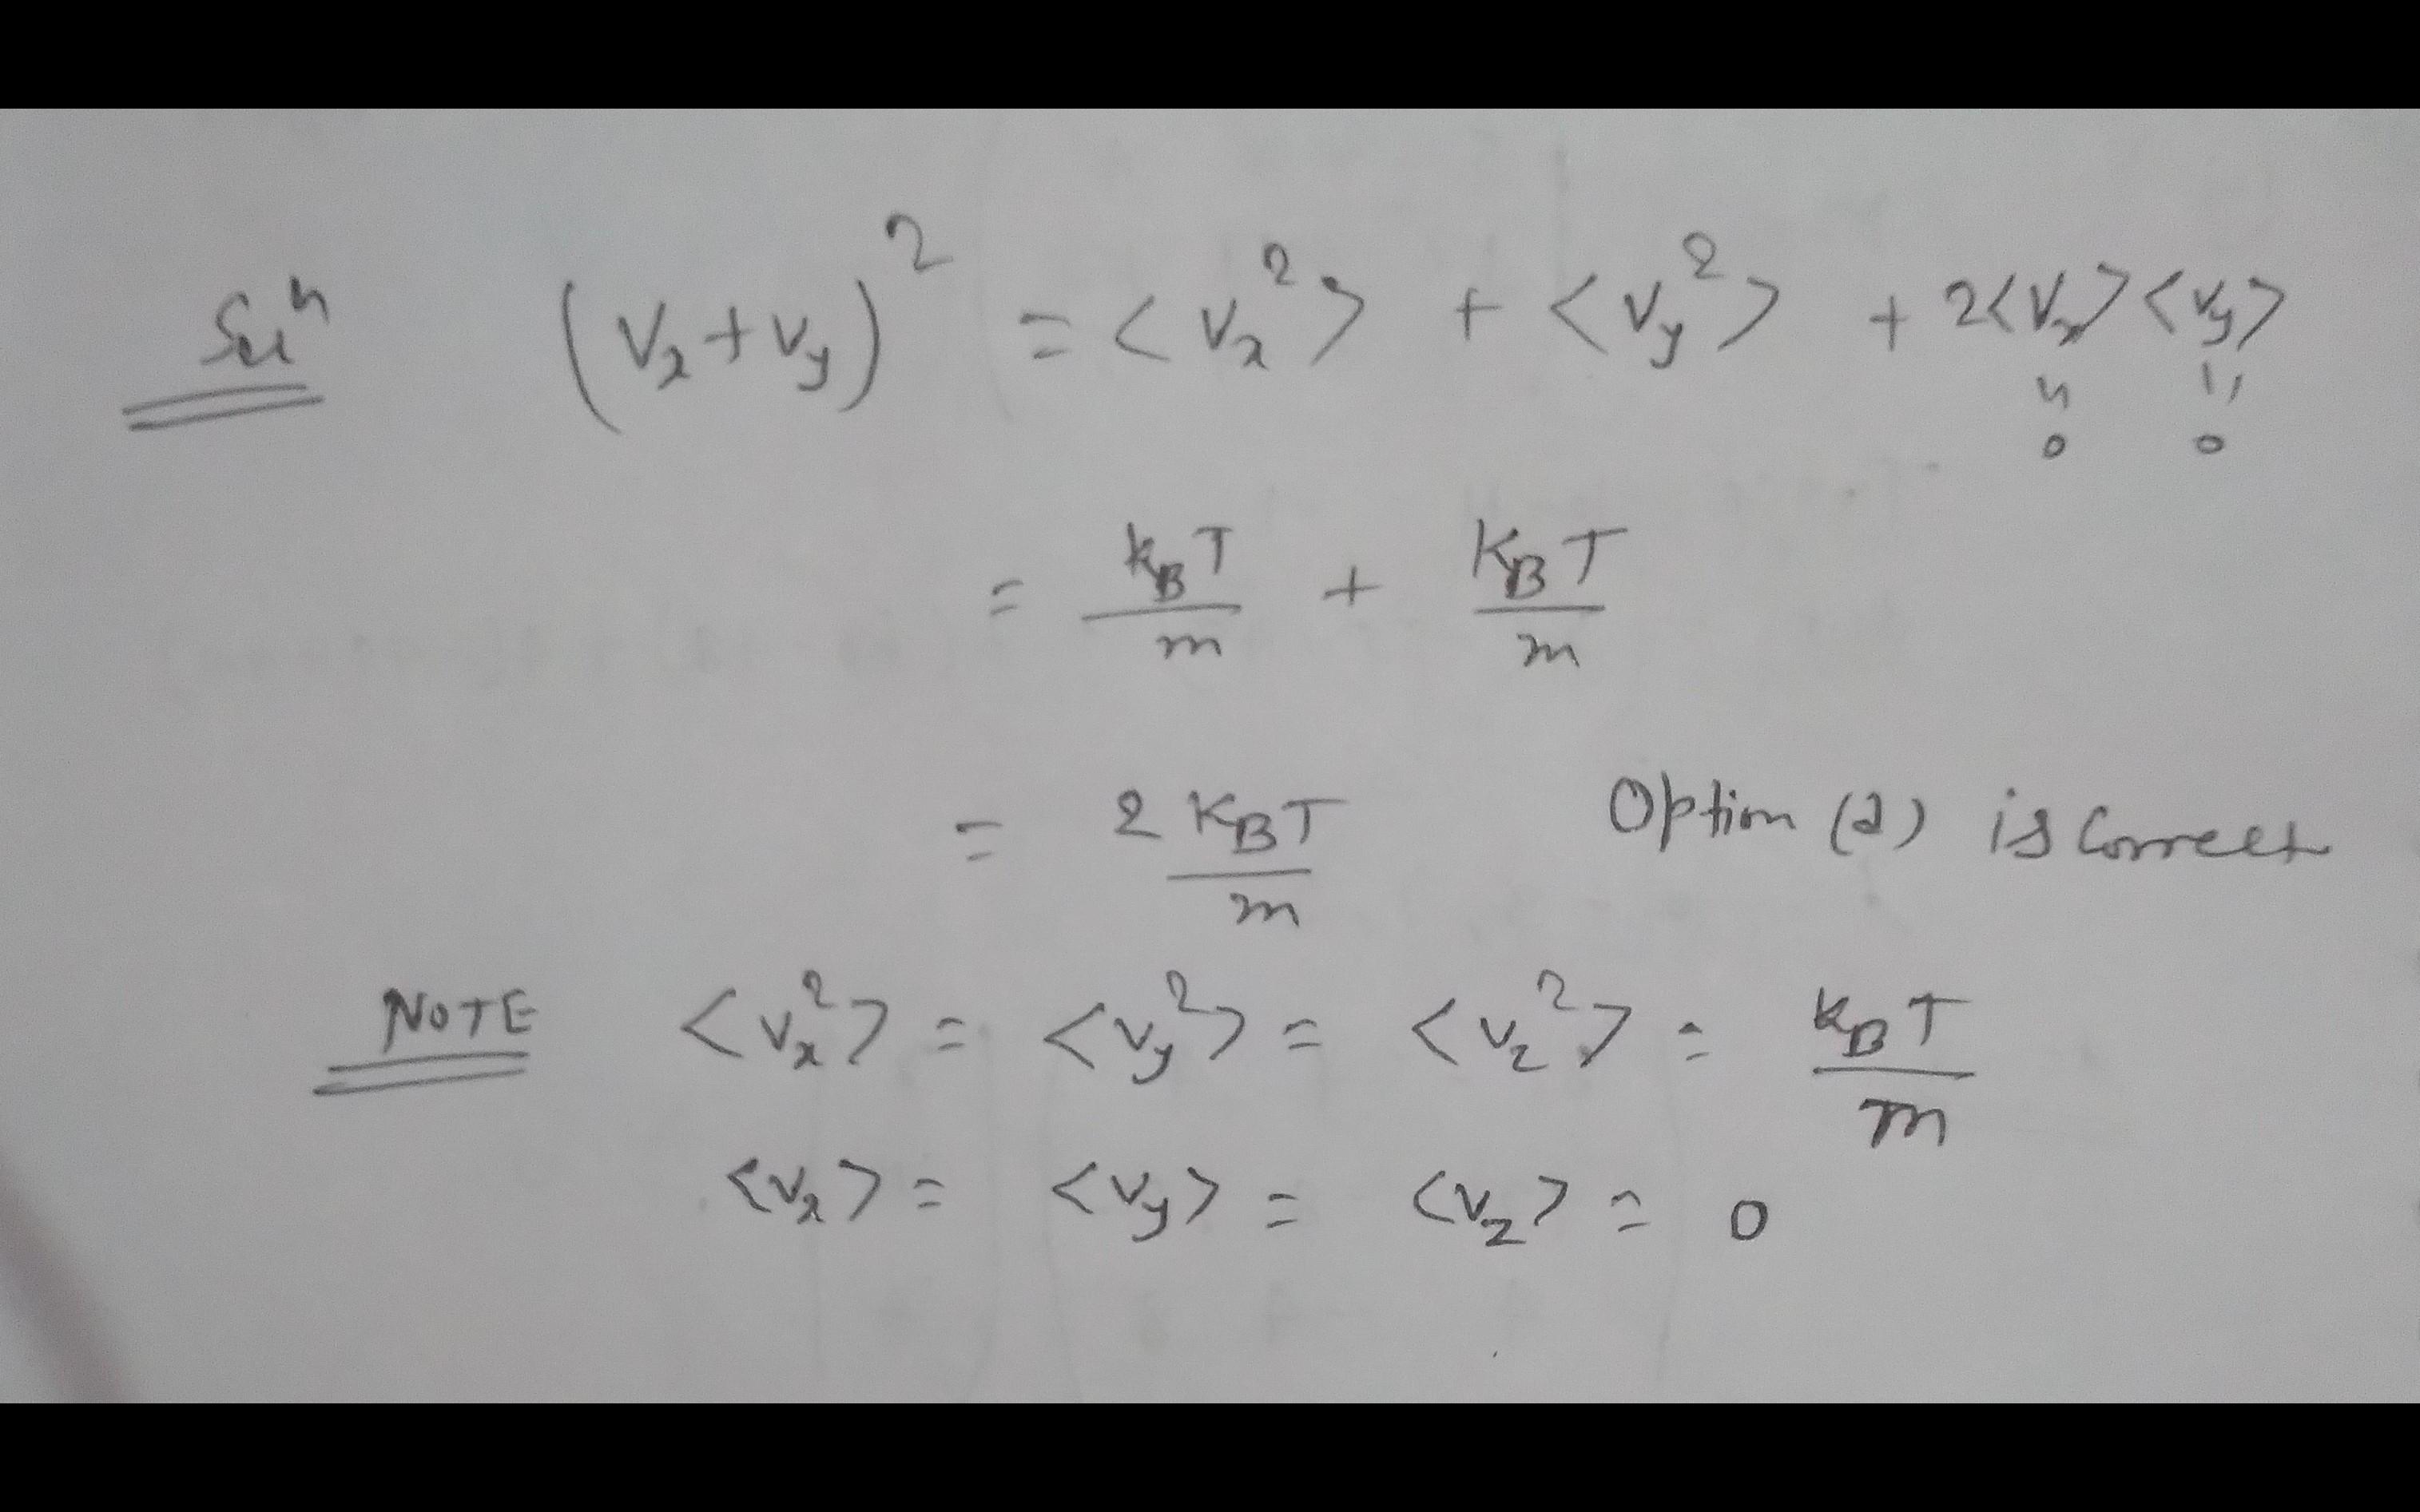 Solⁿ (Vx+Vy)² = <Vx²> + <Vy²> + 2<Vx><Vy>
" "
0 0
= kBT/m + KBT/m
= 2KBT/m Option (2) is Correct
NOTE <Vx²> = <Vy²> = <Vz²> = kBT/m
<Vx> = <Vy> = <Vz> = 0